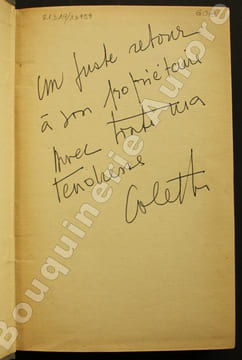 Un juste retour
à son propriétaire
Avec toute ma
tendresse
Colette
Bouquinerie Aurore